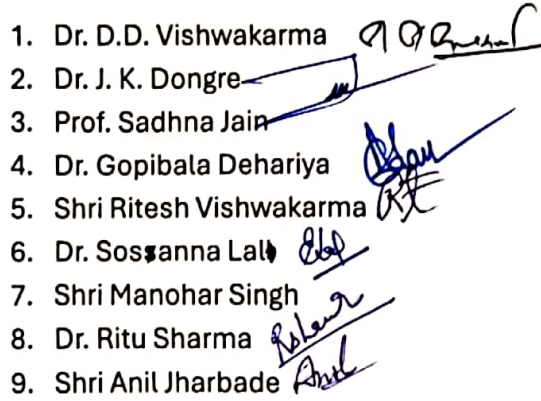 1. Dr. D.D. Vishwakarma
2. Dr. J. K. Dongre
3. Prof. Sadhna Jain
4. Dr. Gopibala Dehariya
5. Shri Ritesh Vishwakarma
6. Dr. Sossanna Lal
7. Shri Manohar Singh
8. Dr. Ritu Sharma
9. Shri Anil Jharbade